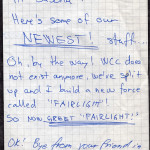 Here's some of our
NEWEST! stuff.
Oh, by the way! WCC does
not exist anymore, we've split
up and I build a new force
called "FAIRLIGHT!"
So now GREET "FAIRLIGHT!"
OK! Bye from your friend in